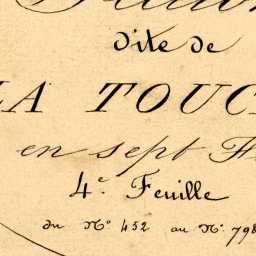 dite de
LA TOUC
en sept F
4e. Feuille
du No 452 au No. 798